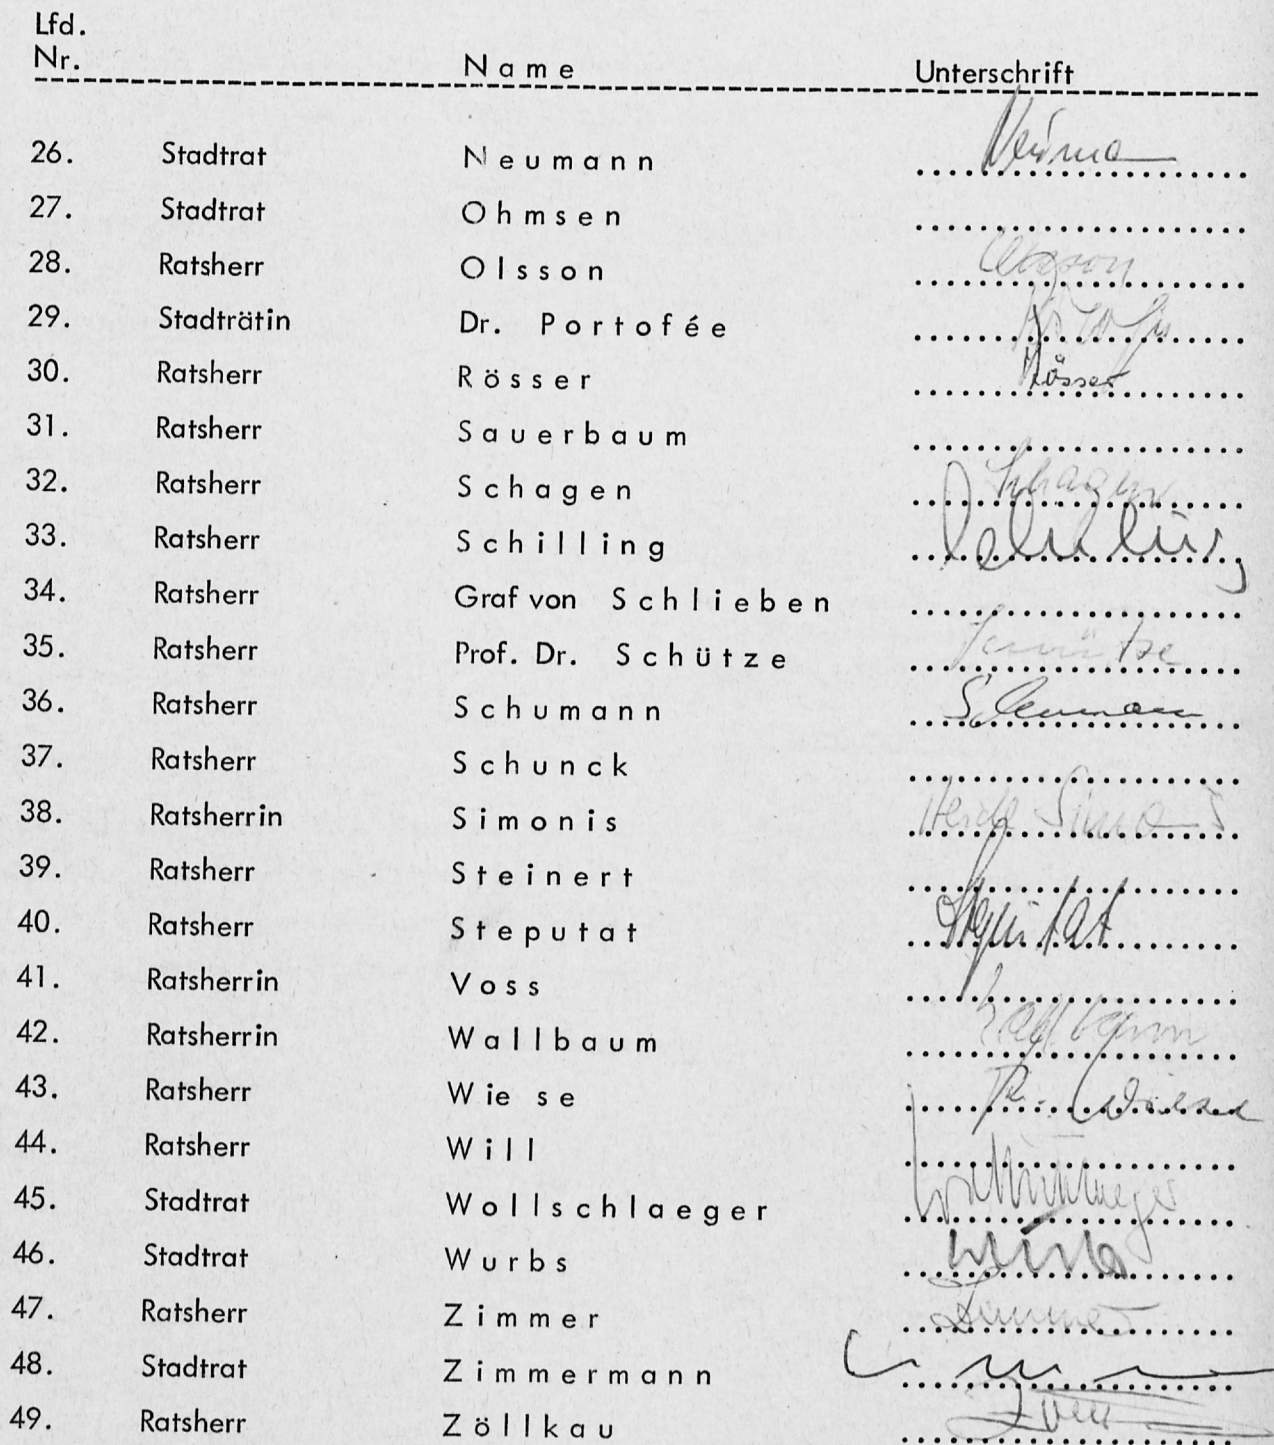 Lfd.
Nr. Name Unterschrift
26. Stadtrat Neumann Neumann
27. Stadtrat Ohmsen
28. Ratsherr Olsson Olsson
29. Stadträtin Dr. Portofée
30. Ratsherr Rösser Rösser
31. Ratsherr Sauerbaum
32. Ratsherr Schagen Schagen
33. Ratsherr Schilling Schilling
34. Ratsherr Graf von Schlieben
35. Ratsherr Prof. Dr. Schütze Schütze
36. Ratsherr Schumann Schumann
37. Ratsherr Schunck
38. Ratsherrin Simonis Heide Simonis
39. Ratsherr Steinert
40. Ratsherr Steputat Steputat
41. Ratsherrin Voss
42. Ratsherrin Wallbaum Wallbaum
43. Ratsherr Wiese R. Wiese
44. Ratsherr Will
45. Stadtrat Wollschlaeger Wollschlaeger
46. Stadtrat Wurbs Wurbs
47. Ratsherr Zimmer Zimmer
48. Stadtrat Zimmermann
49. Ratsherr Zöllkau